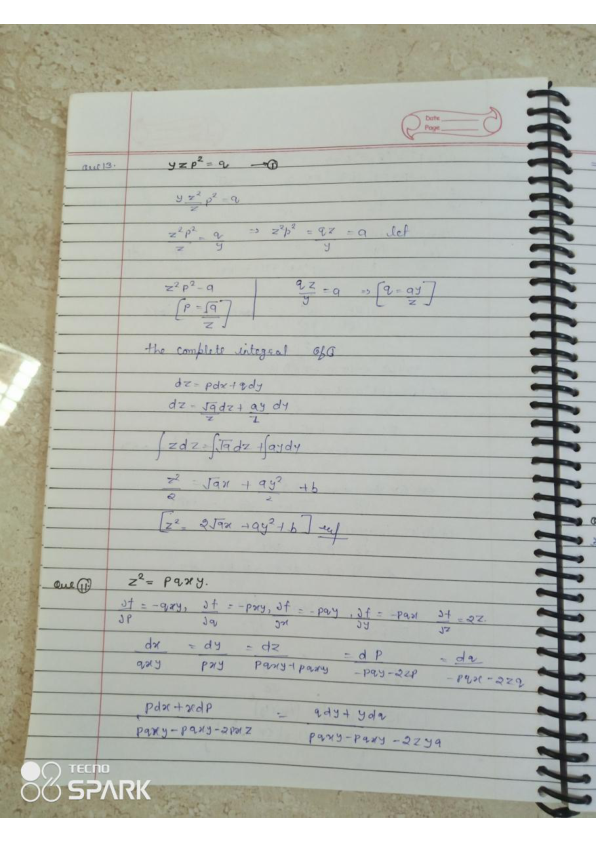 Date
Page
Que 13. yzp² = q → ①
yz²/z p² = q
z²p²/z = q/y ⇒ z²p² = qz/y = a let
z²p² = a | qz/y = a ⇒ [q = ay/z]
[p = √a/z]
the complete integral of ①
dz = pdx + qdy
dz = √a/z dz + ay/z dy
∫zdz = ∫√a dz + ∫aydy
z²/2 = √ax + ay²/2 + b
[z² = 2√ax + ay² + b]
Que 11. z² = pqxy.
∂f/∂p = -qxy, ∂f/∂q = -pxy, ∂f/∂x = -pqy, ∂f/∂y = -pqx ∂f/∂z = 2z
dx/qxy = dy/pxy = dz/pqxy+pqxy = dp/-pqy-2zp = dq/-pqx-2zq
pdx + xdp/pqxy-pqxy-2pxz = qdy + ydq/pqxy-pqxy-2zyq
TECNO
SPARK